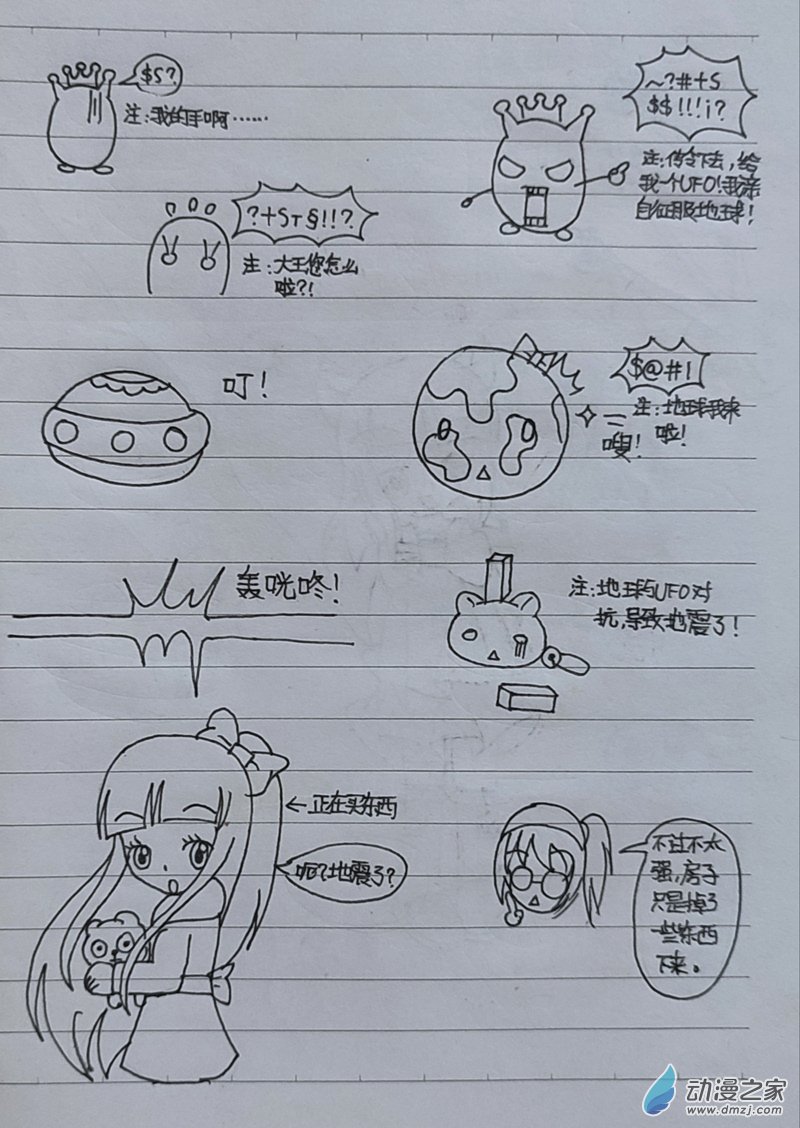 $S?
注:我的手啊……
~?#+S
$$!!!¡?
注:传令下去,给
我一个UFO!我亲
自征服地球!
?+Sτ§!!?
注:大王您怎么
啦?!
叮!
$@#!
注:地球我来
啦!
嗖!
轰咣咚!
注:地球与UFO对
抗,导致地震了!
←正在买东西
呃?地震了?
不过不太
强,房子
只是掉了
一些东西
下来。
动漫之家
www.dmzj.com